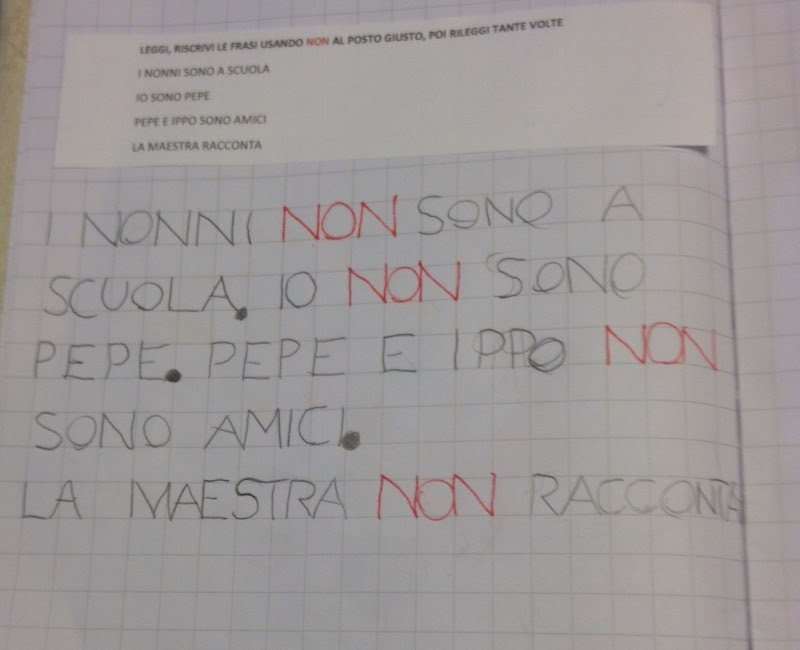 LEGGI, RISCRIVI LE FRASI USANDO NON AL POSTO GIUSTO, POI RILEGGI TANTE VOLTE
I NONNI SONO A SCUOLA
IO SONO PEPE
PEPE E IPPO SONO AMICI
LA MAESTRA RACCONTA
I NONNI NON SONO A
SCUOLA. IO NON SONO
PEPE. PEPE E IPPO NON
SONO AMICI.
LA MAESTRA NON RACCONTA